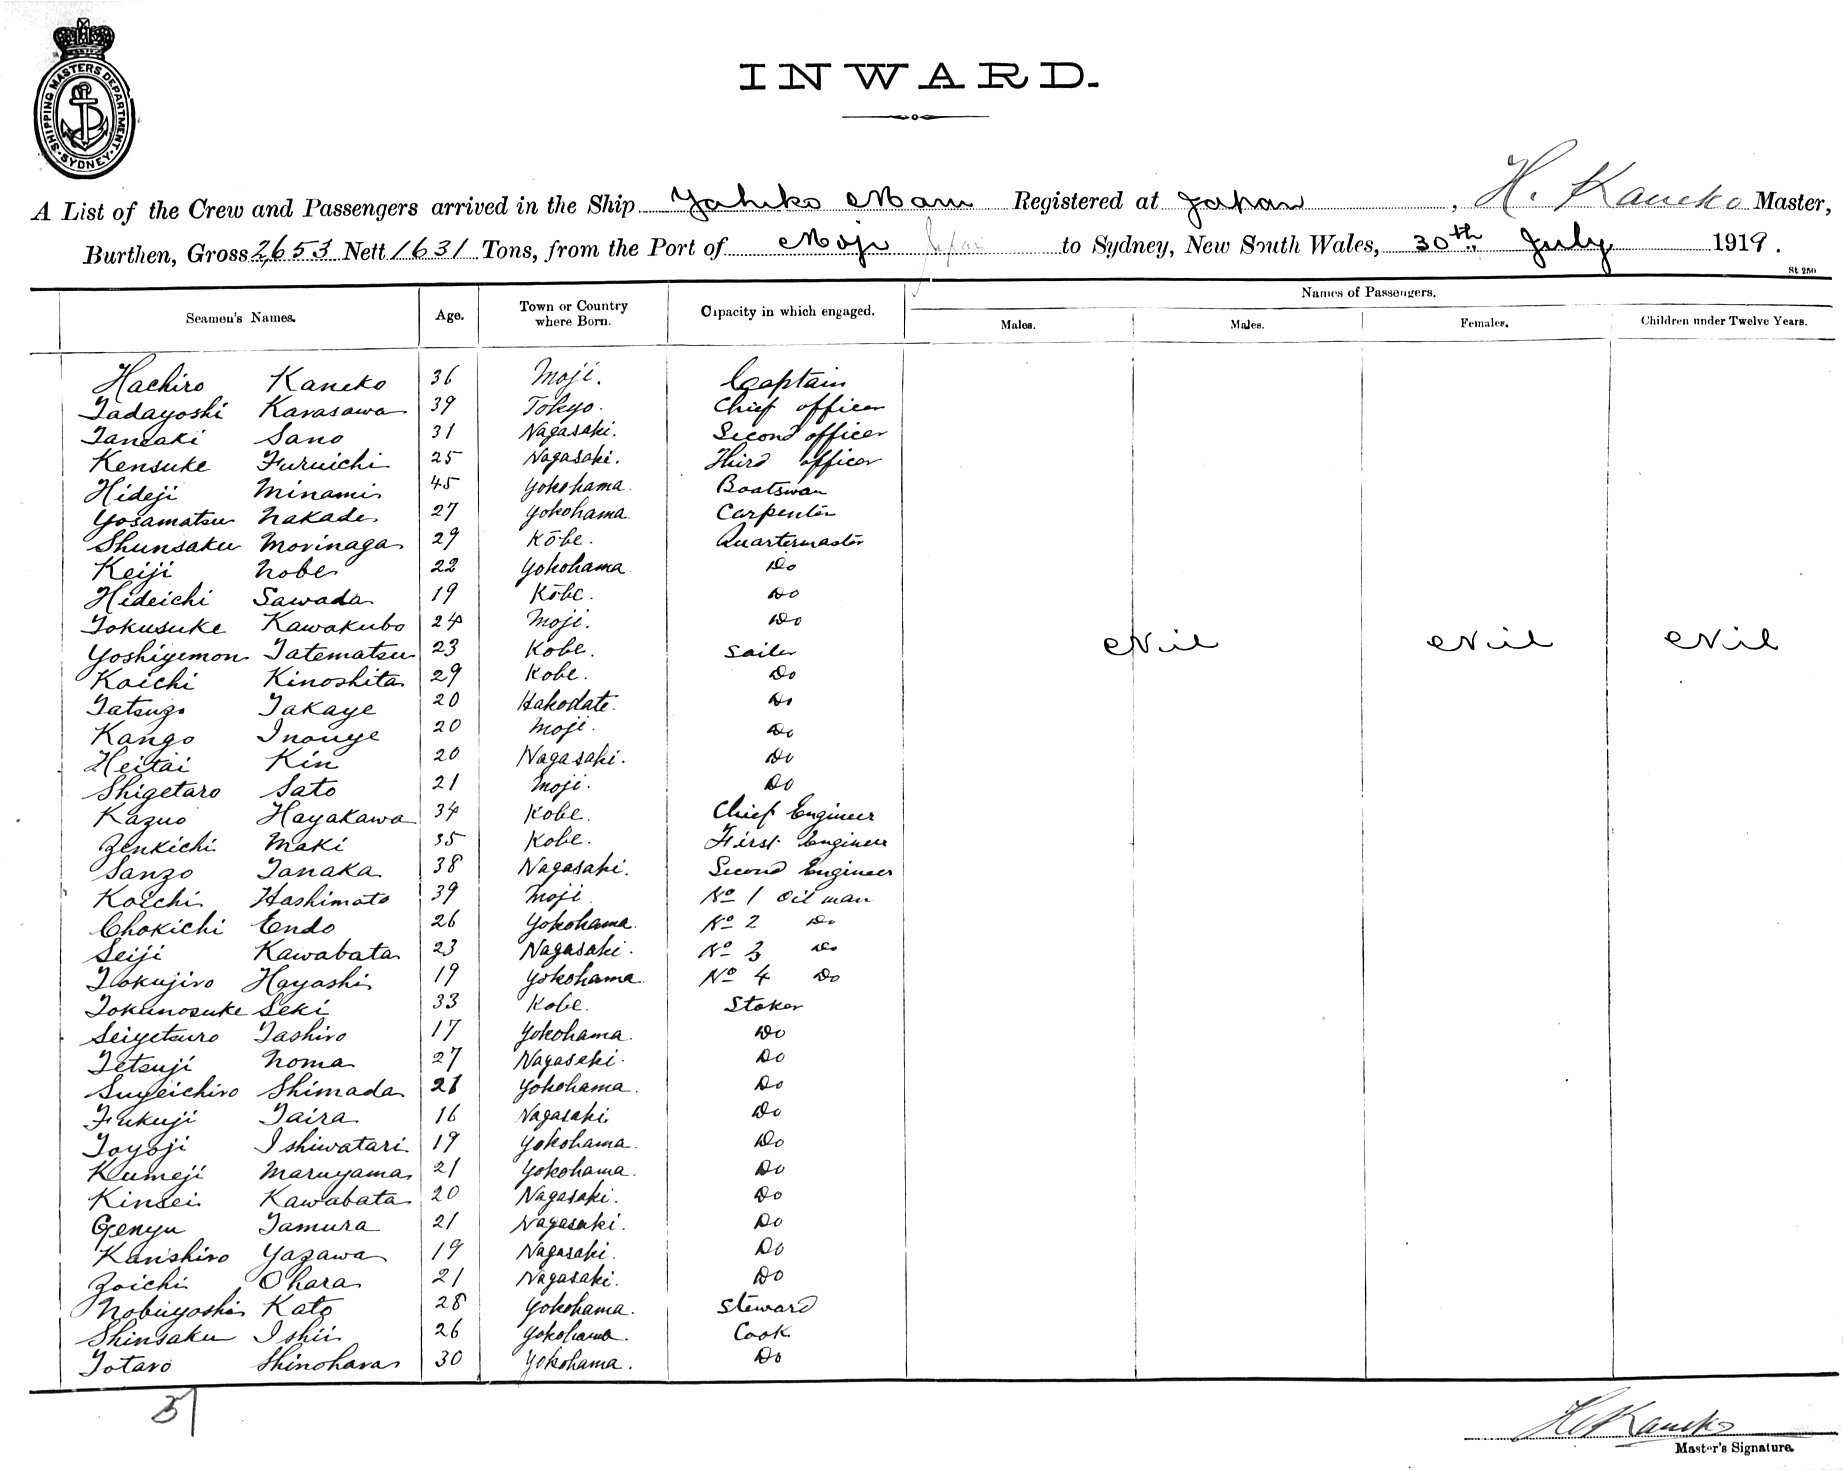 SHIPPING MASTERS DEPARTMENT
SYDNEY
INWARD.
A List of the Crew and Passengers arrived in the Ship Yahiko Maru Registered at Japan, H. Kaneko Master,
Burthen, Gross 2653 Nett 1631 Tons, from the Port of Moji Japan to Sydney, New South Wales, 30th July 1919.
St. 250
Seamen's Names. Age. Town or Country where Born. Capacity in which engaged. Names of Passengers.
Males. Males. Females. Children under Twelve Years.
Hachiro Kaneko 36 Moji. Captain
Tadayoshi Karasawa 39 Tokyo. Chief officer
Taneaki Sano 31 Nagasaki. Second officer
Kensuke Furuichi 25 Nagasaki. Third officer
Hideji Minami 45 Yokohama. Boatswan
Yosamatsu Nakade 27 Yokohama Carpenter
Shunsaku Morinaga 29 Kōbe. Quartermaster
Keiji Nobe 22 Yokohama Do
Hideichi Sawada 19 Kōbe. Do
Tokusuke Kawakubo 24 Moji. Do
Yoshiyemon Tatematsu 23 Kobe. Sailer Nil Nil Nil
Koichi Kinoshita 29 Kobe. Do
Tatsugo Takaye 20 Hakodate. Do
Kango Inouye 20 Moji. Do
Heitai Kin 20 Nagasaki. Do
Shigetaro Sato 21 Moji. Do
Kazuo Hayakawa 34 Kobe. Chief Engineer
Zenkichi Maki 35 Kobe. First Engineer
Sanzo Tanaka 38 Nagasaki. Second Engineer
Koichi Hashimoto 39 Moji No 1 Oil man
Chokichi Endo 26 Yokohama. No 2 Do
Seiji Kawabata 23 Nagasaki. No 3 Do
Tokujiro Hayashi 19 Yokohama No 4 Do
Tokunosuke Seki 33 Kobe. Stoker
Seiyetsuro Tashiro 17 Yokohama. Do
Tetsuji Noma 27 Nagasaki. Do
Suyeichiro Shimada 21 Yokohama. Do
Fukuji Taira 16 Nagasaki Do
Toyoji Ishiwatari 19 Yokohama. Do
Kumeji Maruyama 21 Yokohama. Do
Kinsei Kawabata 20 Nagasaki. Do
Genyu Tamura 21 Nagasaki. Do
Kanshiro Yazawa 19 Nagasaki. Do
Zoichi Ohara 21 Nagasaki. Do
Nobuyoshi Kato 28 Yokohama. Steward
Shinsaku Ishii 26 Yokohama. Cook
Totaro Shinohara 30 Yokohama. Do
H. Kaneko
Master's Signature.